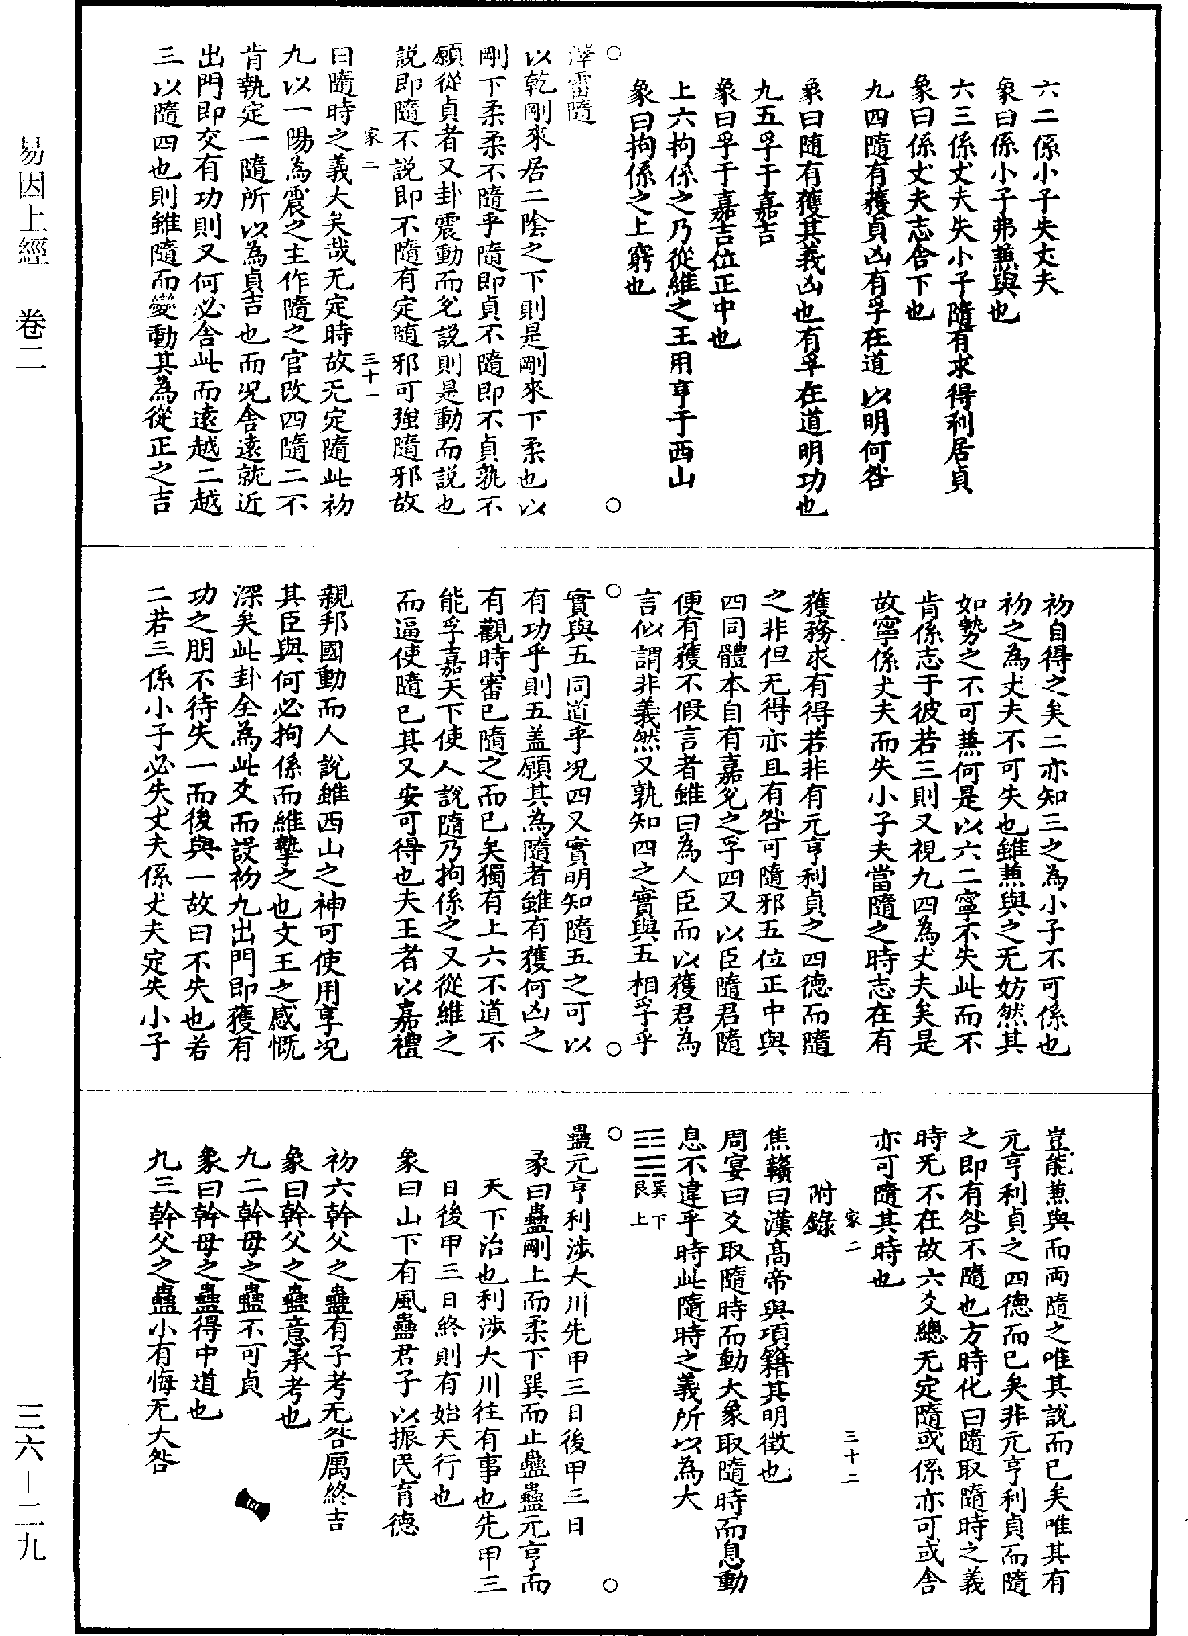 六二係小子失丈夫
象曰係小子弗兼與也
六三係丈夫失小子隨有求得利居貞
象曰係丈夫志舍下也
九四隨有獲貞凶有孚在道以明何咎
象曰随有獲其義凶也有孚在道明功也
九五孚于嘉吉
象曰孚于嘉吉位正中也
上六拘係之乃從維之王用亨于西山
象曰拘係之上窮也
澤雷隨
以乾剛來居二陰之下則是剛來下柔也以
剛下柔柔不隨乎隨即貞不隨即不貞孰不
願從貞者又卦震動而兌説則是動而説也
説即隨不説即不隨有定随邪可強隨邪故
家二 三十一
曰隨時之義大矣哉无定時故无定隨此初
九以一陽為震之主作隨之官改四隨二不
肯執定一隨所以為貞吉也而况舍遠就近
出門即交有功則又何必舍此而遠越二越
三以隨四也則雖隨而變動其為從正之吉
初自得之矣二亦知三之為小子不可係也
初之為丈夫不可失也雖兼與之无妨然其
如勢之不可兼何是以六二寧不失此而不
肯係志于彼若三則又視九四為丈夫矣是
故寧係丈夫而失小子夫當隨之時志在有
獲務求有得若非有元亨利貞之四德而隨
之非但无得亦且有咎可隨邪五位正中與
四同體本自有嘉兌之孚四又以臣隨君隨
便有獲不假言者雖曰為人臣而以獲君為
言似謂非義然又孰知四之實與五相孚乎
實與五同道乎况四又實明知隨五之可以
有功乎則五盖願其為隨者雖有獲何凶之
有觀時審已隨之而已矣獨有上六不道不
能孚嘉天下使人說隨乃拘係之又從維之
而逼使隨已其又安可得也夫王者以嘉禮
親邦國動而人說雖西山之神可使用享况
其臣與何必拘係而維摯之也文王之感慨
深矣此卦全為此爻而設初九出門即獲有
功之朋不待失一而後與一故曰不失也若
二若三係小子必失丈夫係丈夫定失小子
豈能兼與而兩隨之唯其說而已矣唯其有
元亨利貞之四德而已矣非元亨利貞而隨
之即有咎不隨也方時化曰隨取隨時之義
時无不在故六爻總无定隨或係亦可或舍
亦可隨其時也
家二 三十二
附錄
焦贛曰漢高帝與項籍其明徵也
周宴曰爻取隨時而動大象取隨時而息動
息不違乎時此隨時之義所以為大
巽下艮上
蠱元亨利涉大川先甲三日後甲三日
彖曰蠱剛上而柔下巽而止蠱蠱元亨而
天下治也利涉大川往有事也先甲三
日後甲三日終則有始天行也
象曰山下有風蠱君子以振民育德
初六幹父之蠱有子考无咎厲終吉
象曰幹父之蠱意承考也
九二幹母之蠱不可貞
象曰幹母之蠱得中道也
九三幹父之蠱小有悔无大咎
易因上經 卷二
三六－二九